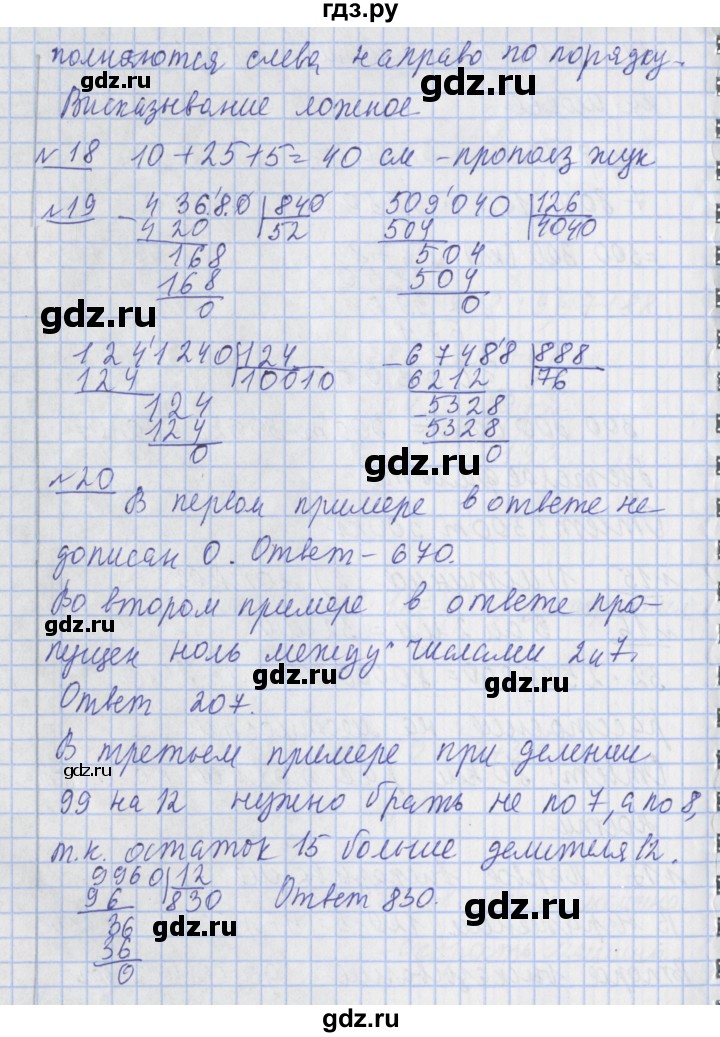 гдз.ру
полняются слева направо по порядку.
Высказывание ложное
gdz.ru
№18 10+25+5=40 см - прополз жук
№19 43680 840 509040 126
420 52 504 4040
168 504
168 504
0 0
gdz.ru gdz.ru
1241240 124 67488 888
124 10010 6212 76
124 5328
124 5328
0 0
gdz.ru
№20
В первом примере в ответе не-
дописан 0. Ответ - 670.
Во втором примере в ответе про-
gdz.ru
пущен ноль между числами 2 и 7.
gdz.ru gdz.ru
Ответ 207.
В третьем примере при делении
gdz.ru
99 на 12 нужно брать не по 7, а по 8,
т.к. остаток 15 больше делителя 12.
9960 12
96 830 Ответ 830.
36
36
0
gdz.ru gdz.ru
gdz.ru